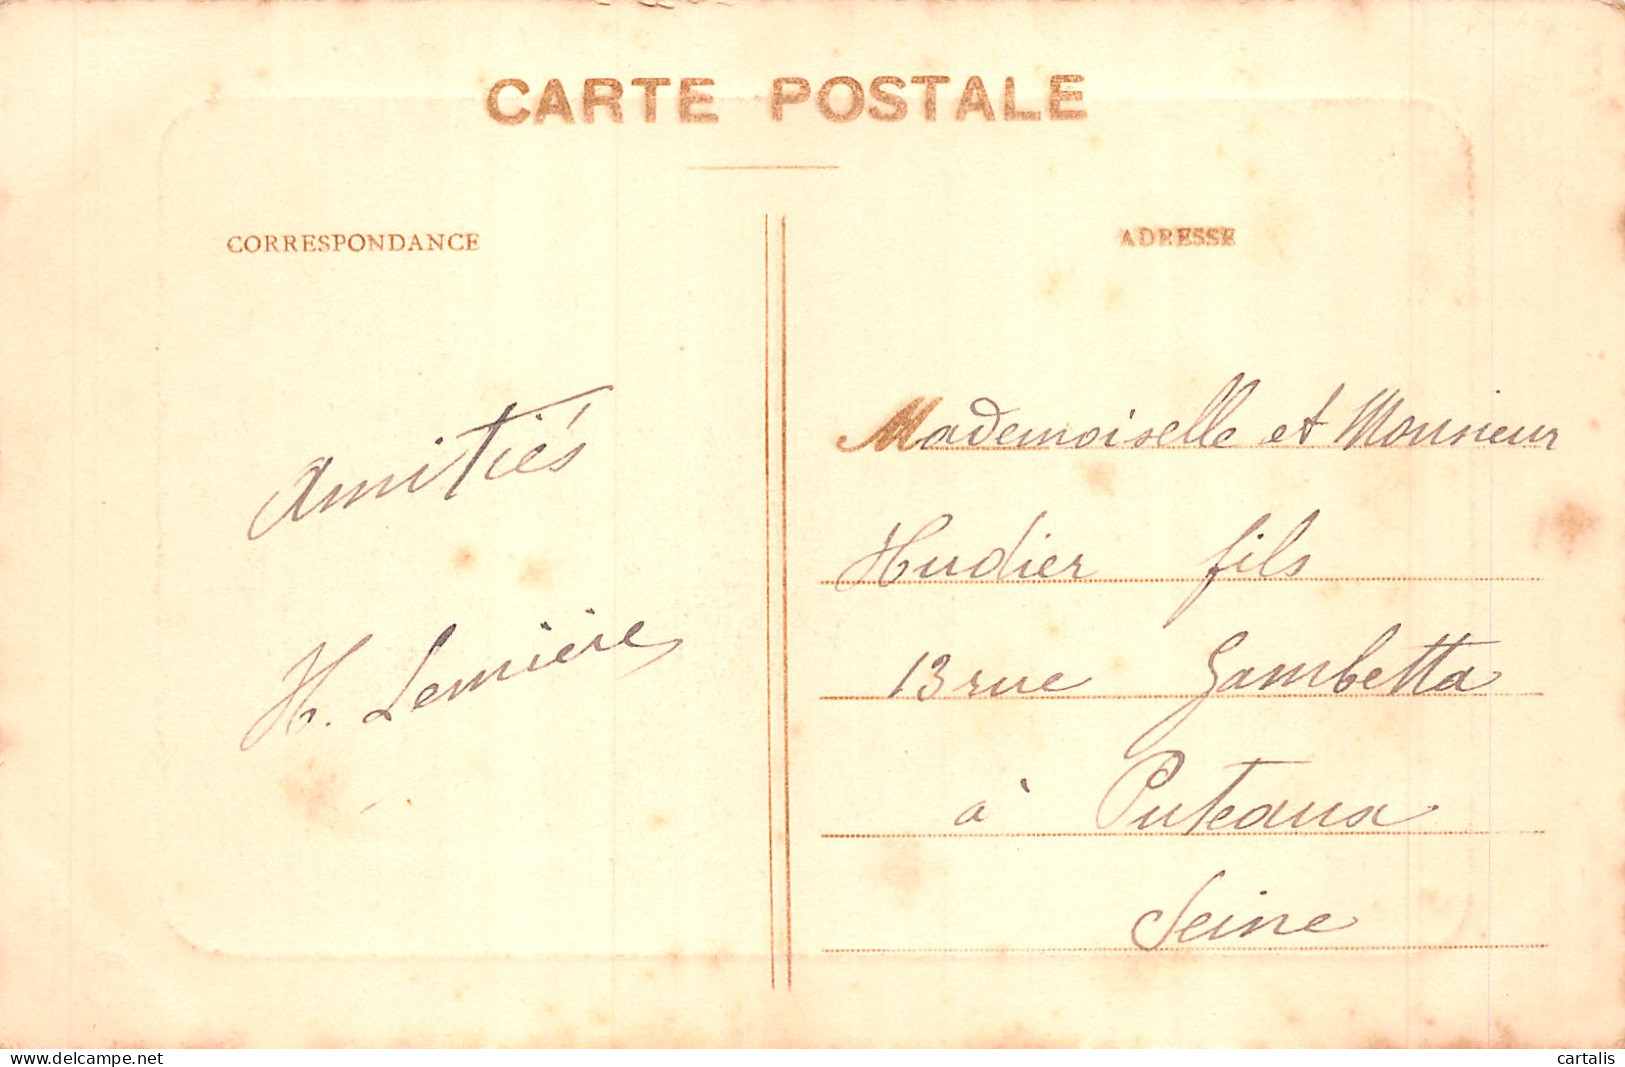 CARTE POSTALE
CORRESPONDANCE
Amitiés
H. Lemière
ADRESSE
Mademoiselle et Monsieur
Hudier fils
13 rue Gambetta
à Puteaux
Seine
www.delcampe.net
cartalis